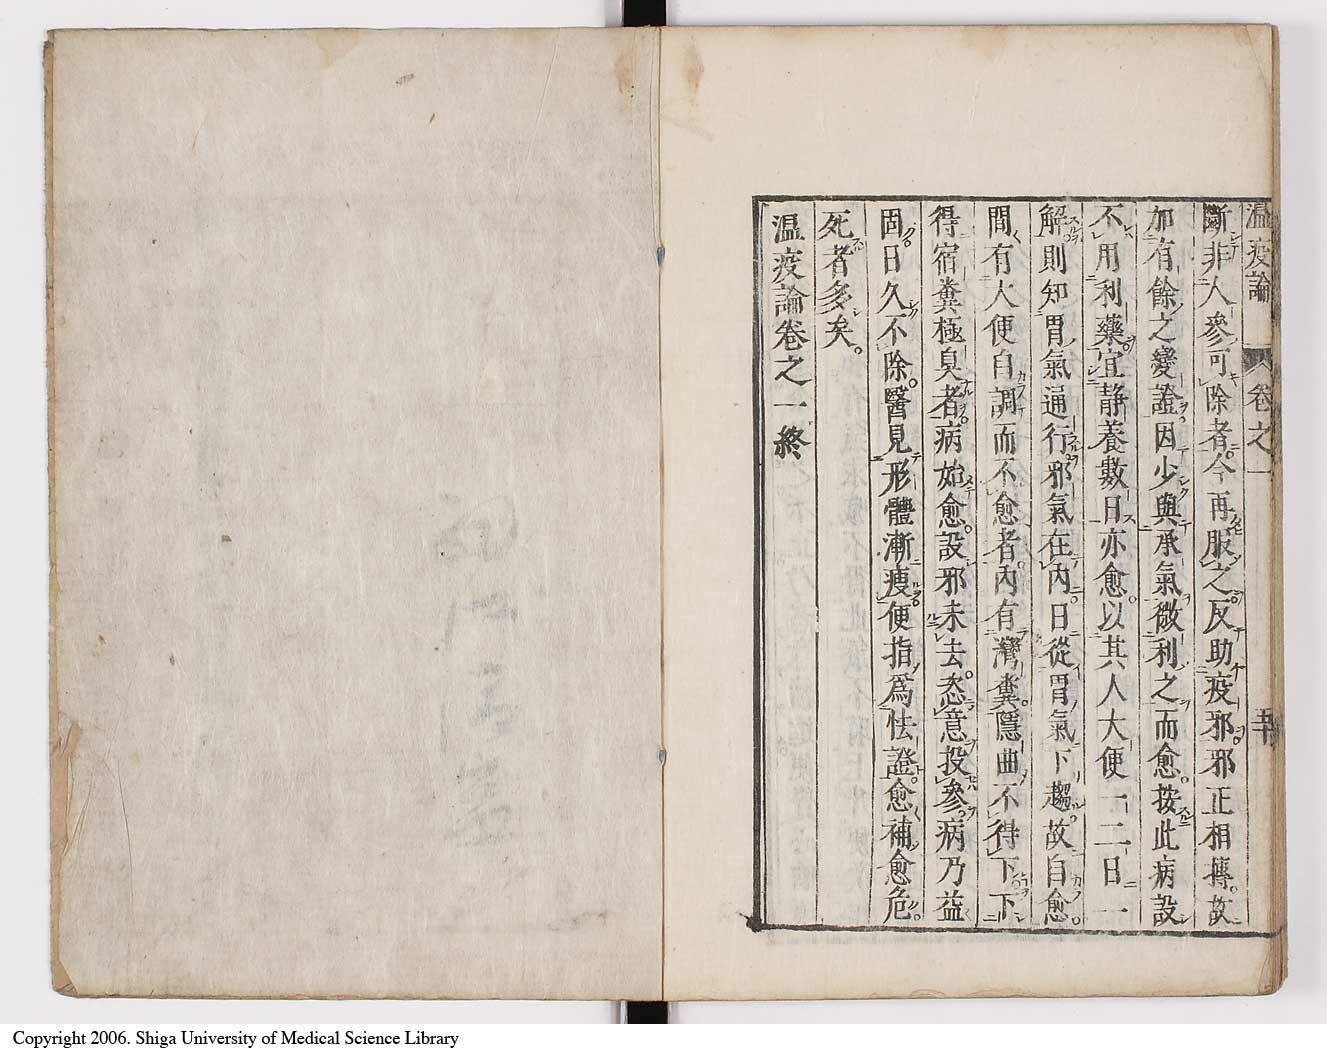 温疫論 卷之一 五十
斷非人參可除者今再服之反助疫邪邪正相摶故
加有餘之變證因少與承氣微利之而愈按此病設
不用利藥宜靜養數日亦愈以其人大便一二日一
解則知胃氣通行邪氣在內日從胃氣下趨故自愈
間有大便自調而不愈者內有灣糞隱曲不得下下
得宿糞極臭者病始愈設邪未去恣意投參病乃益
固日久不除醫見形體漸瘦便指為怯證愈補愈危
死者多矣
温疫論卷之一終
Copyright 2006. Shiga University of Medical Science Library